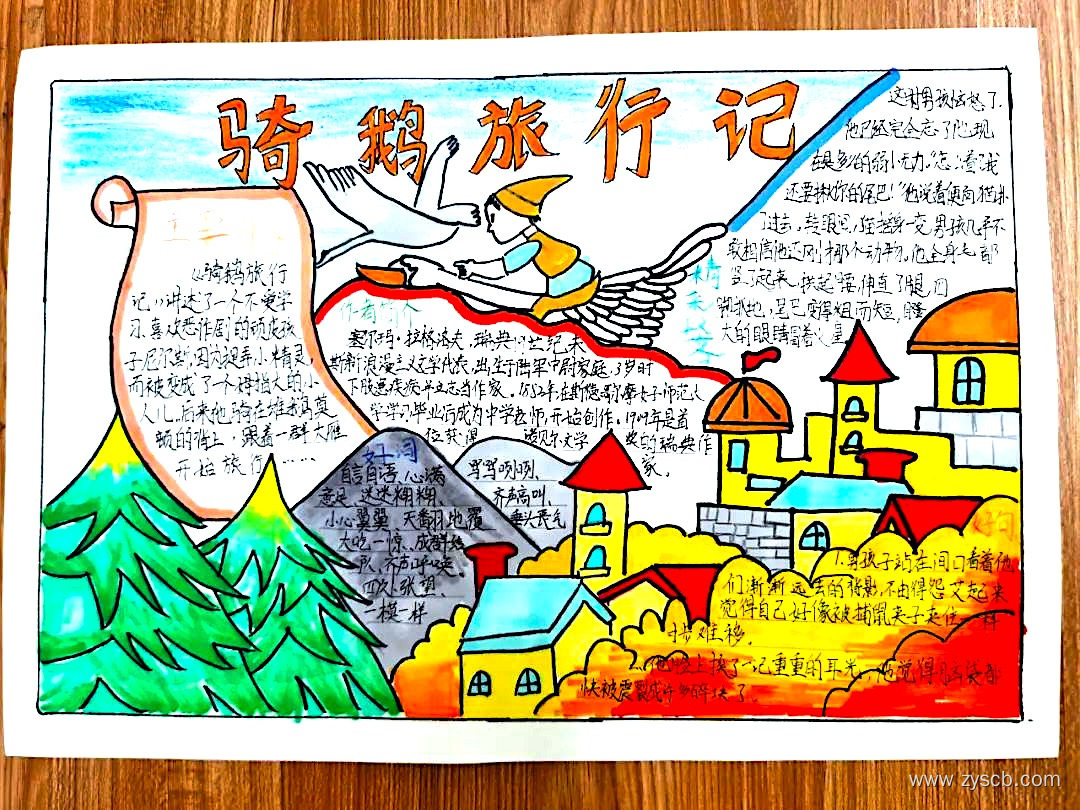 骑鹅旅行记
《骑鹅旅行
记》讲述了一个不爱学
习、喜欢恶作剧的顽皮孩
子尼尔斯,因为捉弄小精灵,
而被变成了一个拇指大的小
人儿。后来他骑在雄鹅莫
顿的背上,跟着一群大雁
开始旅行……
作者简介
塞尔玛·拉格洛夫,瑞典
世纪末
斯新浪漫主义文学代表,出生于陆军中尉家庭,3岁时
下肢患疾病并立志当作家。1882年,在斯德哥尔摩女子师范大
学学习毕业后成为中学教师,开始创作。1909年是首
位获得诺贝尔文学奖的瑞典作
家。
精彩选文
这时男孩恼怒了.
他已经完全忘了他现
在是多么的弱小无力。“怎么着?我
还要揪你的尾巴!”他说着便向猫扑
了过去,转眼间,猫摇身一变,男孩几乎不
敢相信他还刚才那个动物,他全身毛都
竖了起来,拱起腰,伸直了腿,四
脚抓地,尾巴变得粗而短,
大的眼睛冒着火星
好词
自言自语、心满
意足、迷迷糊糊、
小心翼翼、天翻地覆
大吃一惊、成群结
队、齐声呼唤、
四处张望、
一模一样
骂骂咧咧、
齐声高叫、
垂头丧气
好句
1.男孩子站在洞口看着他
们渐渐远去的背影,不由得怨艾起来
觉得自己好像被捕鼠夹子夹住一样
寸步难移。
2.他脸上挨了一记重重的耳光,他觉得脑袋都
快被震裂成许多碎块了。
www.zyscb.com